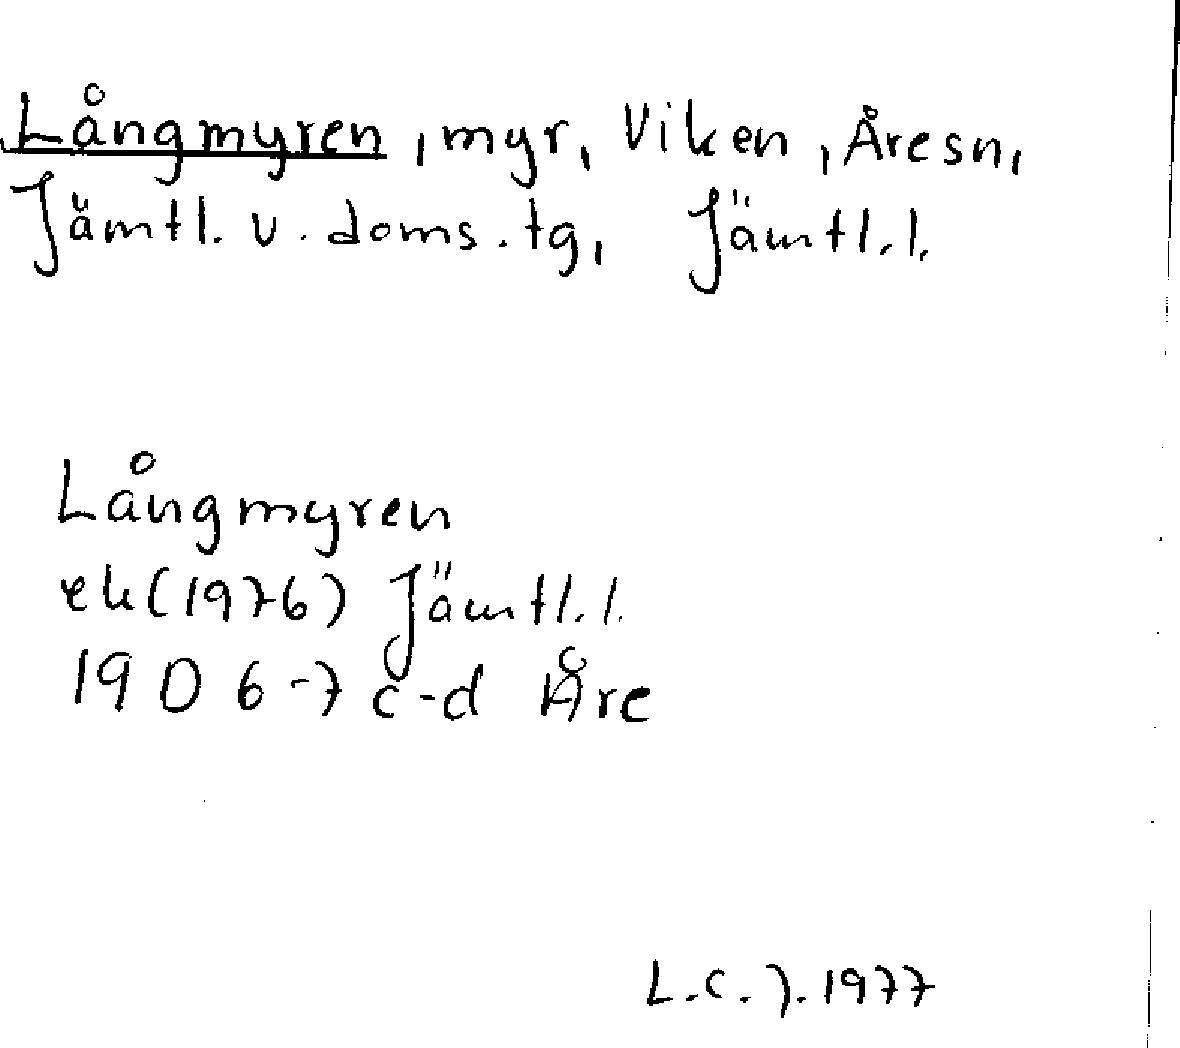 Långmyren, myr, Viken, Åresn,
Jämtl. v. doms. tg, Jämtl. l.
Långmyren
ek (1976) Jämtl. l.
19 D 6-7 c-d Åre
L.C.J. 1977